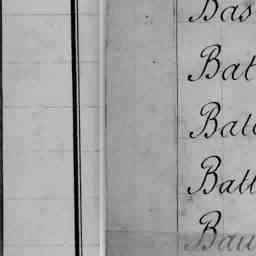 Bas
Bat
Bat
Batt
Bau